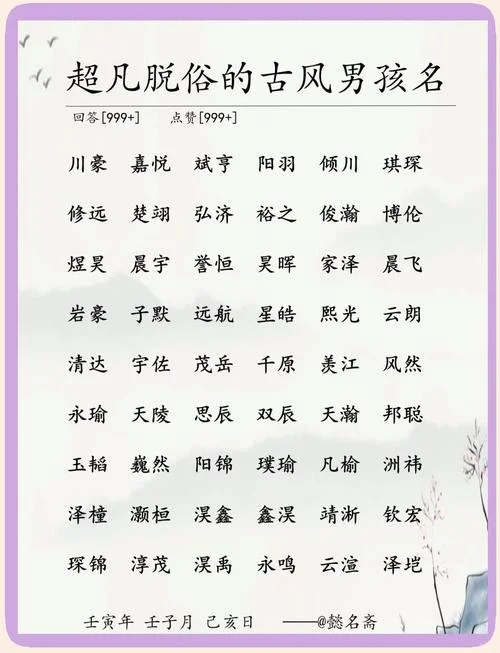 超凡脱俗的古风男孩名
回答[999+] 点赞[999+]
川豪 嘉悦 斌亨 阳羽 倾川 琪琛
修远 楚翊 弘济 裕之 俊瀚 博伦
煜昊 晨宇 誉恒 昊晖 家泽 晨飞
岩豪 子默 远航 星皓 熙光 云朗
清达 宇佐 茂岳 千原 羡江 风然
永瑜 天陵 思辰 双辰 天瀚 邦聪
玉韬 巍然 阳锦 璞瑜 凡榆 洲祎
泽橦 灏桓 淏鑫 鑫淏 靖淅 钦宏
琛锦 淳茂 淏禹 永鸣 云渲 泽垲
壬寅年 壬子月 己亥日 ——@懿名斋